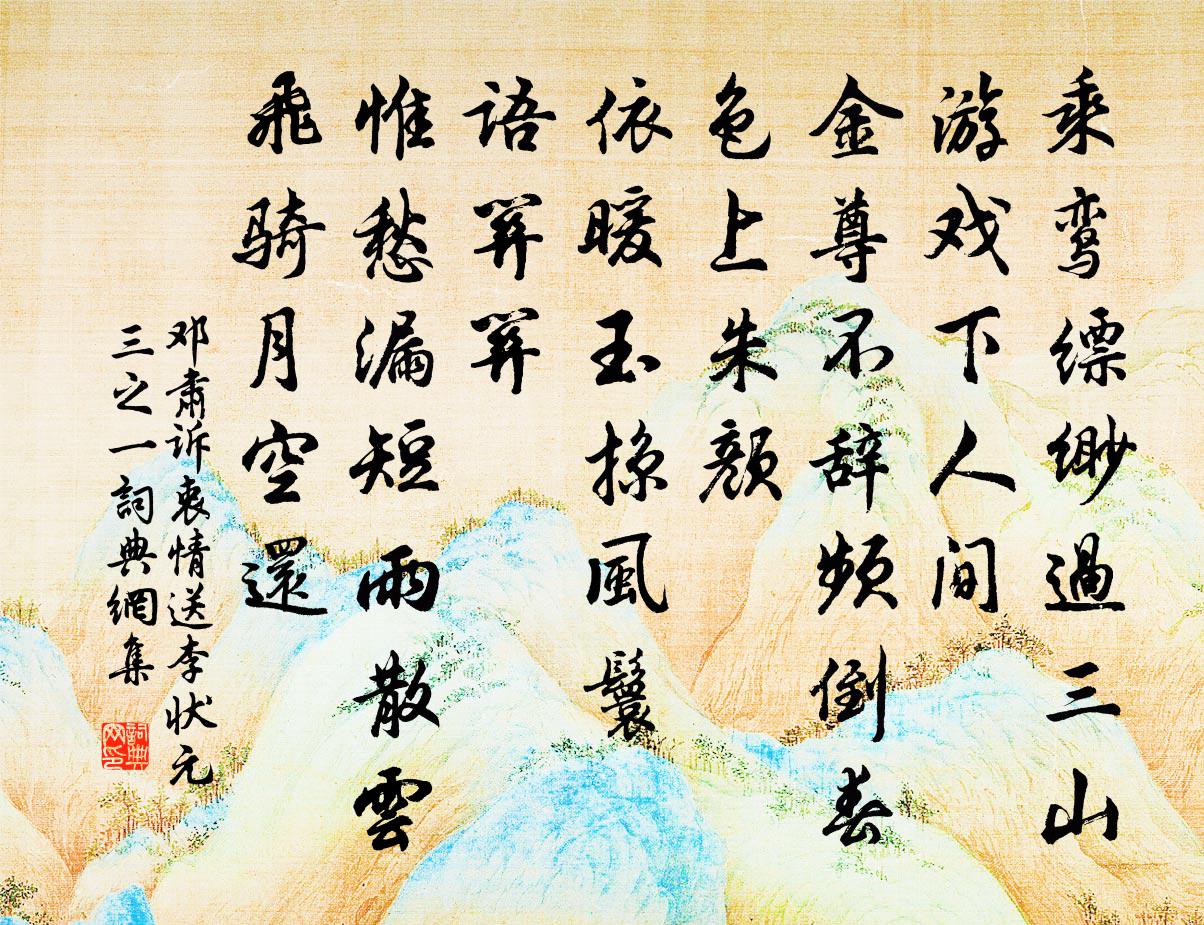 乘鸾缥缈過三山
游戏下人间
金尊不辞频倒春
色上朱颜
依暖玉掠風鬟
语関関
惟愁漏短雨散雲
飛骑月空還
邓肃诉衷情送李状元
三之一詞典網集
詞典
网印